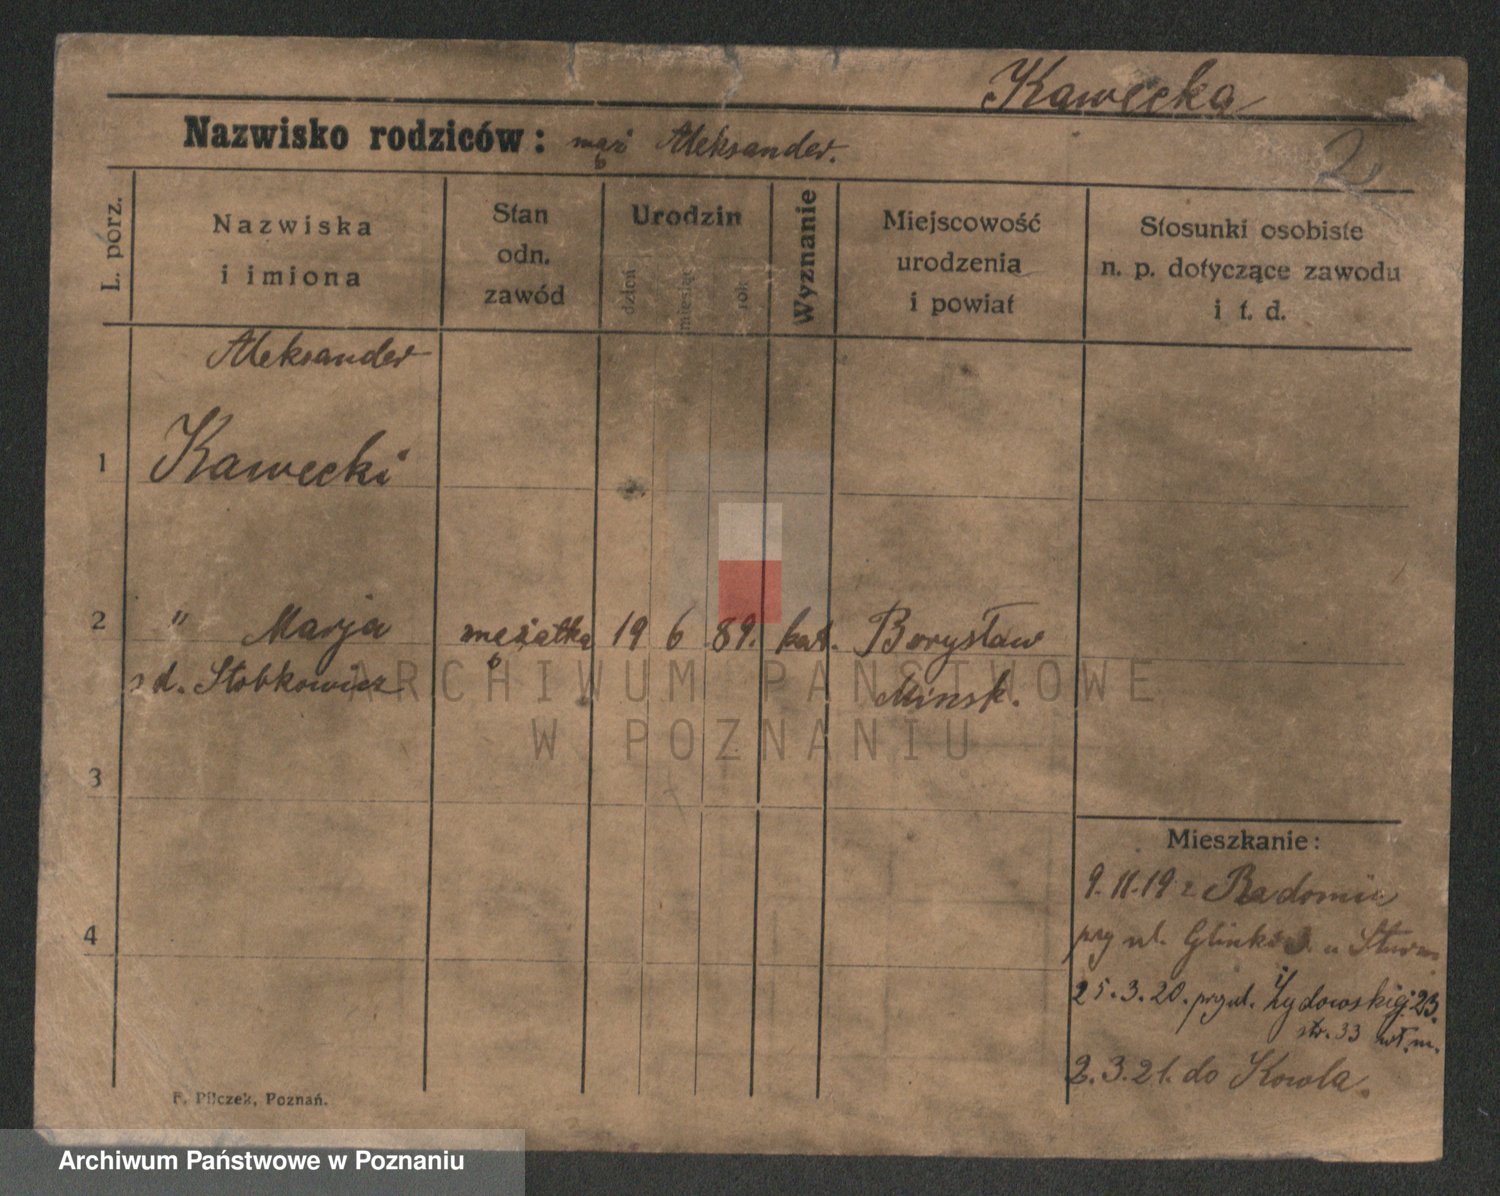 Kawecka
2
Nazwisko rodziców: mąż Aleksander.
L. porz.
Nazwiska
i imiona
Stan
odn.
zawód
Urodzin
dzień
miesiąc
rok
Wyznanie
Miejscowość
urodzenia
i powiat
Stosunki osobiste
n. p. dotyczące zawodu
i t. d.
Aleksander
1 Kawecki
2 " Marja mężatka 19 6 89. kat. Borysław
z d. Stobkowicz Minsk.
ARCHIWUM PAŃSTWOWE
W POZNANIU
3
4
Mieszkanie:
9.11.19 z Radomia
przy ul. Glinki 3. u
25.3.20. przy ul. Żydowskiej 23.
str. 33 wł. m.
2.3.21. do Kowla.
F. Pilczek, Poznań.
Archiwum Państwowe w Poznaniu